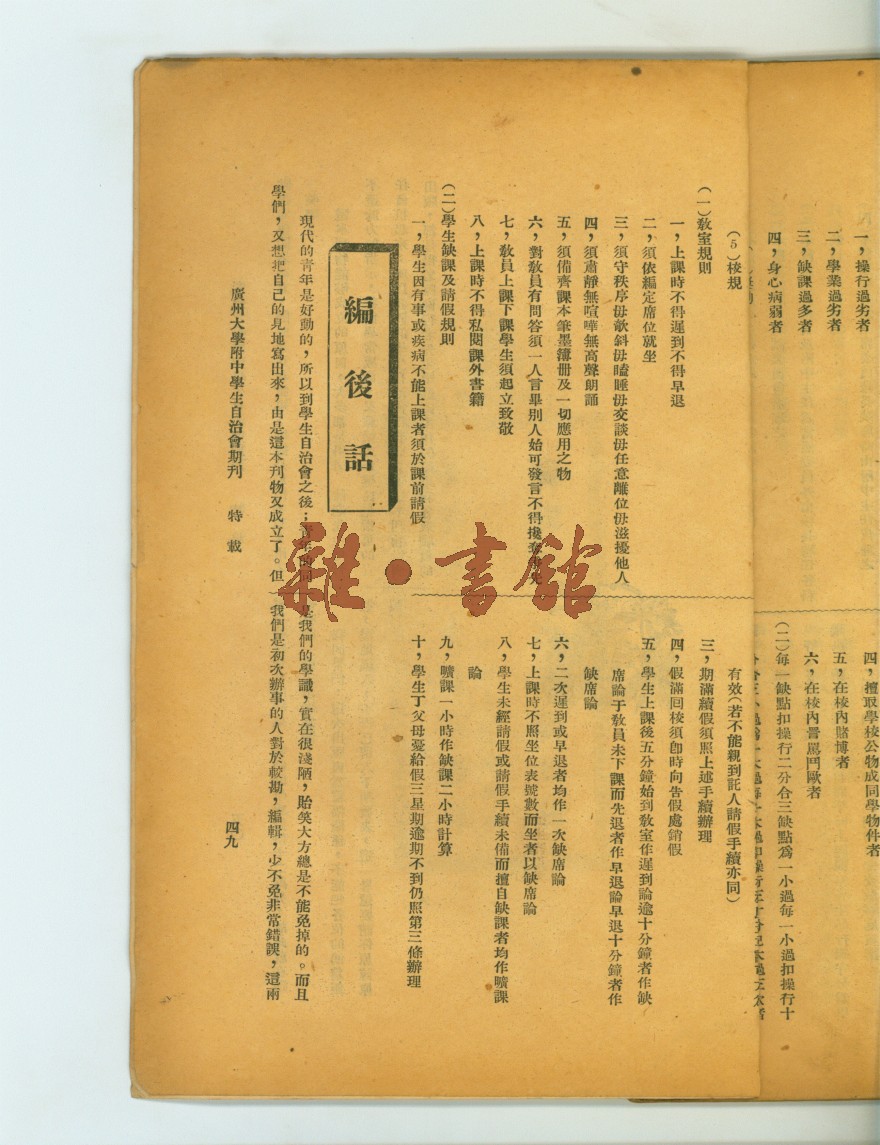 一，操行過劣者
二，學業過劣者
三，缺課過多者
四，身心病弱者
四，擅取學校公物或同學物件者
五，在校內賭博者
六，在校內詈罵鬥毆者
(二)每一缺點扣操行二分合三缺點為一小過每一小過扣操行十
(5)校規
(一)教室規則
一，上課時不得遲到不得早退
二，須依編定席位就坐
三，須守秩序毋欹斜毋瞌睡毋交談毋任意離位毋滋擾他人
四，須肅靜無喧嘩無高聲朗誦
五，須備齊課本筆墨簿册及一切應用之物
六，對教員有問答須一人言畢別人始可發言不得攙
七，教員上課下課學生須起立致敬
八，上課時不得私閱課外書籍
(二)學生缺課及請假規則
一，學生因有事或疾病不能上課者須於課前請假
有效(若不能親到託人請假手續亦同)
三，期滿續假須照上述手續辦理
四，假滿回校須卽時向告假處銷假
五，學生上課後五分鐘始到教室作遲到論逾十分鐘者作缺
席論于教員未下課而先退者作早退論早退十分鐘者作
缺席論
六，二次遲到或早退者均作一次缺席論
七，上課時不照坐位表號數而坐者以缺席論
八，學生未經請假或請假手續未備而擅自缺課者均作曠課
論
九，曠課一小時作缺課二小時計算
十，學生丁父母憂給假三星期逾期不到仍照第三條辦理
編後話
現代的青年是好動的，所以到學生自治會之後；是我們的學識，實在很淺陋，貽笑大方總是不能免掉的。而且
學們，又想把自己的見地寫出來，由是這本刊物又成立了。但我們是初次辦事的人對於較勘，編輯，少不免非常錯誤，這兩
廣州大學附中學生自治會期刊 特載
四九
雜·書館